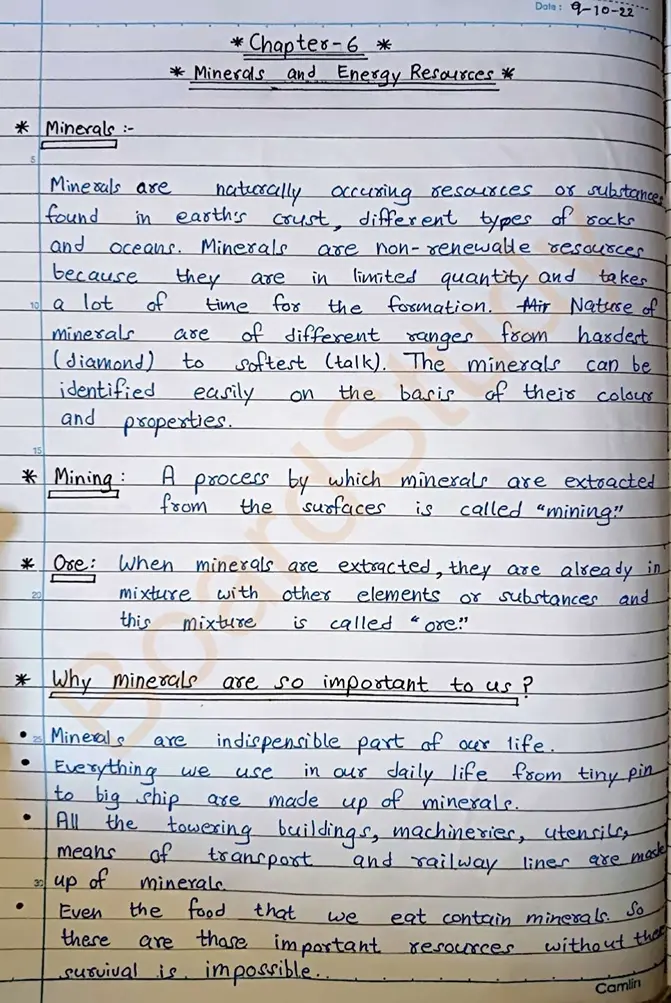 Date : 9-10-22
* Chapter-6 *
* Minerals and Energy Resources *
* Minerals :-
5
Minerals are naturally occuring resources or substances
found in earth's crust, different types of rocks
and oceans. Minerals are non-renewable resources
because they are in limited quantity and takes
10 a lot of time for the formation. Nature of
minerals are of different ranges from hardest
(diamond) to softest (talk). The minerals can be
identified easily on the basis of their colour
and properties.
15
* Mining : A process by which minerals are extracted
from the surfaces is called "mining."
* Ore : When minerals are extracted, they are already in
20 mixture with other elements or substances and
this mixture is called "ore."
* Why minerals are so important to us ?
• 25 Minerals are indispensible part of our life.
• Everything we use in our daily life from tiny pin
to big ship are made up of minerals.
• All the towering buildings, machineries, utensils,
means of transport and railway lines are made
30 up of minerals.
• Even the food that we eat contain minerals. So
these are those important resources without
survival is impossible..
Camlin
BoardStudy